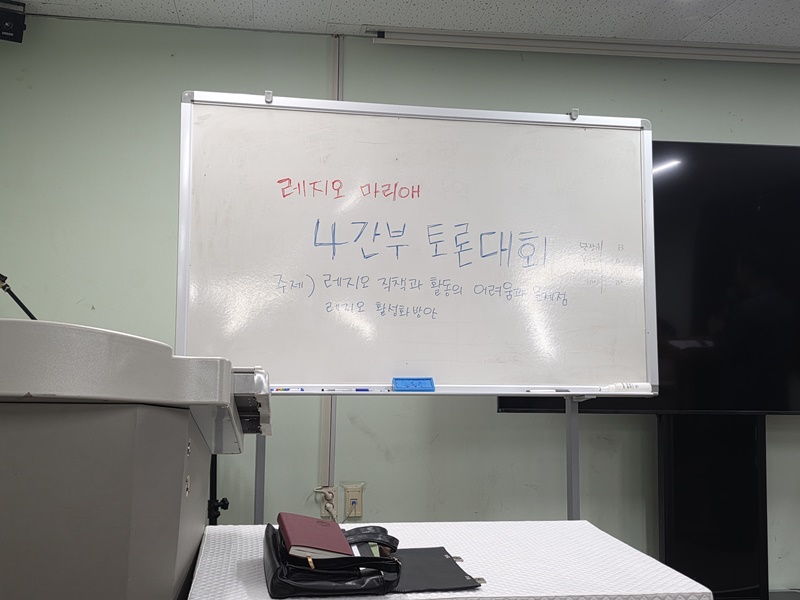 레지오 마리애
4간부 토론대회
주제) 레지오 직책과 활동의 어려움과 문제점
레지오 활성화방안